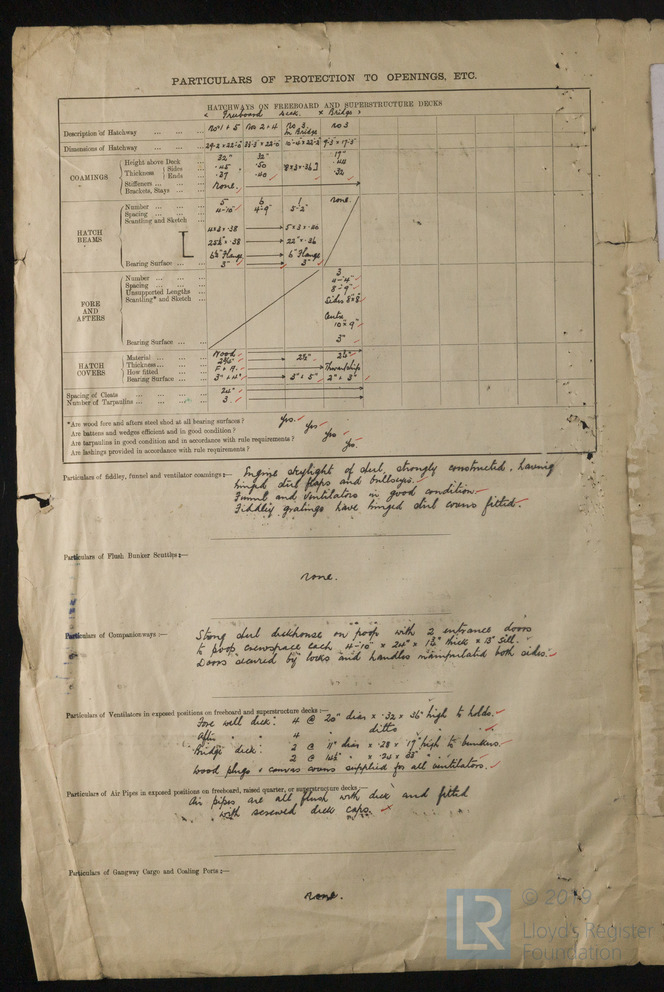 PARTICULARS OF PROTECTION TO OPENINGS, ETC.
HATCHWAYS ON FREEBOARD AND SUPERSTRUCTURE DECKS
< Freeboard deck. × Bridge >
Description of Hatchway ... ... ... No 1 + 5 Nos 2 + 4 No 3 in Bridge No 3
Dimensions of Hatchway ... ... ...
COAMINGS
Height above Deck ... 32" 32" 17"
Thickness { Sides ... .45 .50 8×3×.36] .44
Ends ... .37 .40 .32
Stiffeners ... ... ... None.
Brackets, Stays ... ...
HATCH BEAMS
Number ... ... ... 5 6 1 None.
Spacing ... ... ... 4-10" 4-9" 5-2"
Scantling and Sketch ...
4×3×.38 5×3×.40
25½"×.38 22"×.36
6½" Flange 6" Flange
Bearing Surface ... ... 3" 3"
FORE AND AFTERS
Number ... ... ... 3
Spacing ... ... ... 4-4"
Unsupported Lengths ... 8-9"
Scantling* and Sketch ... Sides 8×8
Centre 10×9"
Bearing Surface ... ... 3"
HATCH COVERS
Material ... ... ... Wood
Thickness ... ... ... 2½" 2½"
How fitted ... ... F + A. Thwartship
Bearing Surface ... ... 3" + 4" 3" + 5" 2" + 3"
Spacing of Cleats ... ... ... ... 24"
Number of Tarpaulins ... ... ... 3
*Are wood fore and afters steel shod at all bearing surfaces? Yes.
Are battens and wedges efficient and in good condition? Yes
Are tarpaulins in good condition and in accordance with rule requirements? Yes
Are lashings provided in accordance with rule requirements? Yes.
Particulars of fiddley, funnel and ventilator coamings:— Engine skylight of steel, strongly constructed, having
hinged steel flaps and bullseyes.
Funnel and ventilators in good condition.
Fiddley gratings have hinged steel covers fitted.
Particulars of Flush Bunker Scuttles:—
None.
Particulars of Companionways:— Strong steel deckhouse on poop with 2 entrance doors
to poop crewspace each 4-10" × 24" × 1½" thick × 15" sill.
Doors secured by locks and handles manipulated both sides.
Particulars of Ventilators in exposed positions on freeboard and superstructure decks:—
Fore well deck: 4 @ 20" diar × .32 × 36" high to holds.
After " " 4 ditto " "
Bridge deck: 2 @ 11" diar × .28 × 17" high to bunkers.
2 @ " × .24 × "
Wood plugs + canvas covers supplied for all ventilators.
Particulars of Air Pipes in exposed positions on freeboard, raised quarter, or superstructure decks:—
Air pipes are all flush with deck and fitted
with screwed deck caps.
Particulars of Gangway Cargo and Coaling Ports:—
None.
LR
© 2019
Lloyd's Register
Foundation